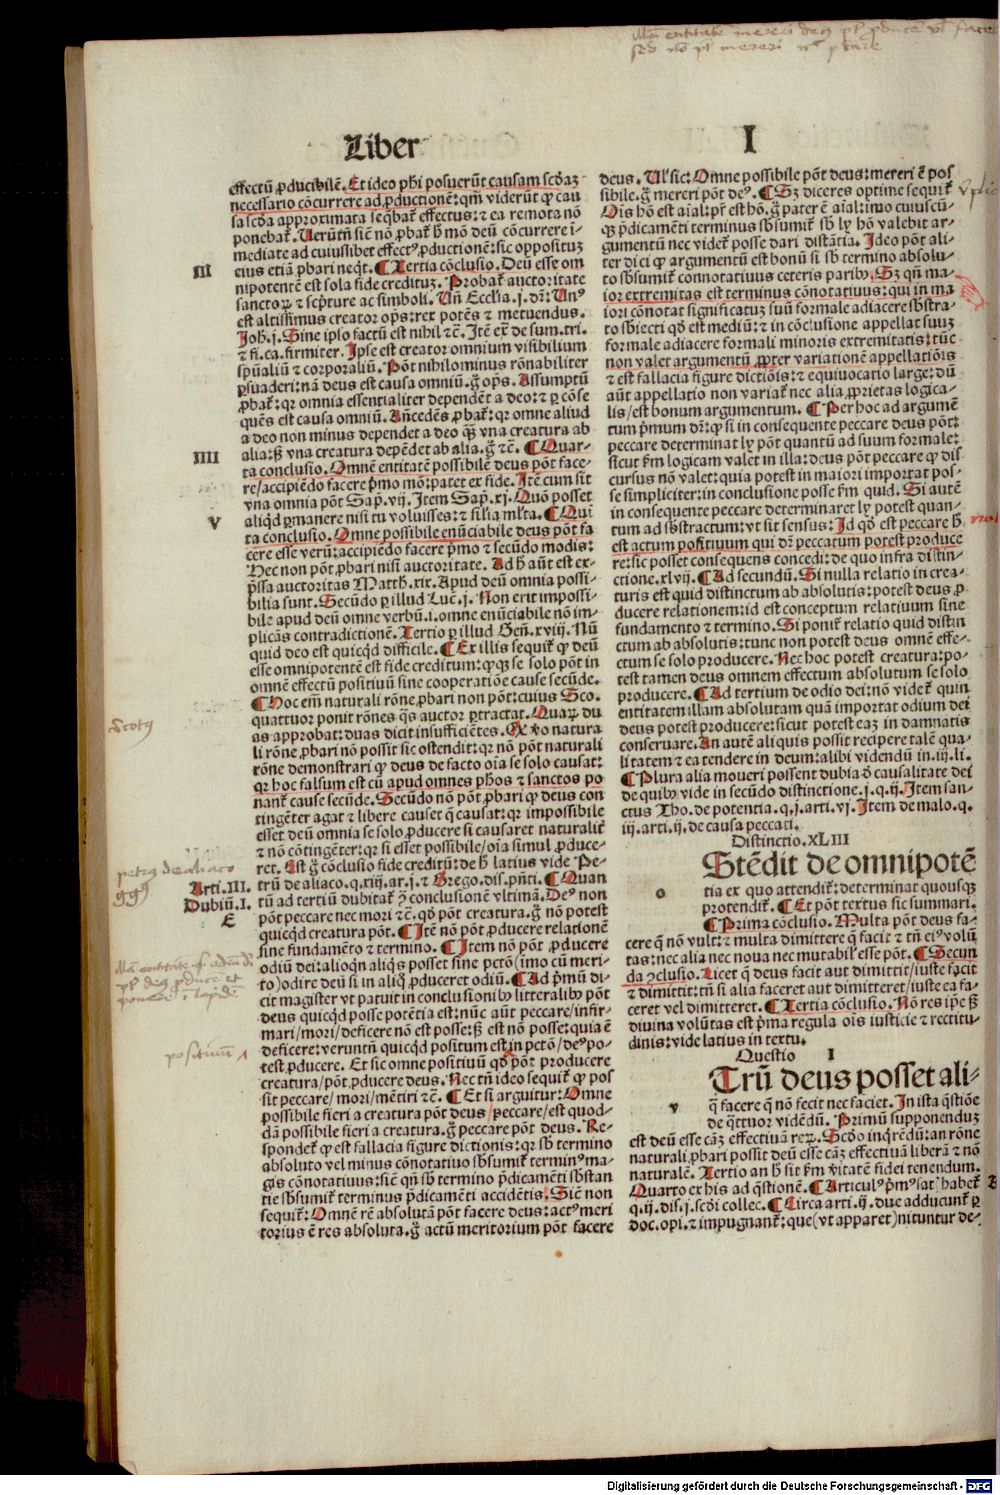 Liber I
effectū ꝓducibilē. Et ideo phi posuerūt causam scd̄az
necessario cōcurrere ad ꝓductionē: qm̄ viderūt ꝙ cau
sa scd̄a approximata seq̄bat̄ effectus: ⁊ ea remota nō
ponebat̄. Uerūtn̄ sicut nō ꝓbat̄ ꝙ mō deū cōcurrere i-
mediate ad cuiuslibet effectꝰ ꝓductionē: sic opposituz
III
eius etiā ꝓbari neq̄t. ¶ Tertia cōclusio. Deū esse om
nipotentē est sola fide credituz. Probat̄ auctoritate
sanctoꝝ ⁊ scpture ac simboli. Un̄ Eccl̄ia. j. dn̄: Unꝰ
est altissimus creator op̄s: rex potēs ⁊ metuendus.
Joh̄. j. Sine ipso factū est nihil ⁊c̄. Itē ex̄ de sum. tri.
⁊ fi. ca. firmiter. Ipse est creator omnium visibilium
spūaliū ⁊ corporaliū. Pōt nihilominus rōnabiliter
ꝑsuaderi: nā deus est causa omniū. ḡ op̄s. Assumptū
ꝓbat̄: qꝛ omnia essentialiter dependēt a deo: ⁊ ꝑ cōse
quēs est causa omniū. Añcedēs ꝓbat̄: qꝛ omne aliud
a deo non minus dependet a deo qꝙ vna creatura ab
IIII
alia: sꝫ vna creatura depēdet ab alia. ḡ ⁊c̄. ¶ Quar-
ta conclusio. Omnē entitatē possibilē deus pōt face-
re/accipiēdo facere pmo mō: patet ex fide. Itē cum sit
vna omnia pōt Sap̄. vij. Item Sap̄. xj. Quō posset
V
aliqd ꝑmanere nisi tu voluisses: ⁊ silia ml̄ta. ¶ Quī
ta conclusio. Omne possibile enūciabile deus pōt fa
cere esse verū: accipiēdo facere pmo ⁊ secūdo modis:
Nec non pōt ꝓbari nisi auctoritate. Ad h̄ aūt est ex-
pssa auctoritas Matth. xix. Apud deū omnia possi-
bilia sunt. Secūdo ꝑ illud Luc̄. j. Non erit impossi-
bile apud deū omne verbū. i. omne enūciabile nō im-
plicās contradictionē. Tertio ꝑ illud Gen̄. xviij. Nū
quid deo est quicqd difficile. ¶ Ex illis sequit̄ ꝙ deū
esse omnipotentē est fide creditum: ꝙꝙ se solo pōt in
omnē effectū positiuū sine cooperatiōe cause secūde.
¶ Hoc em̄ naturali rōne ꝓbari non pōt: cuius Sco.
quattuor ponit rōnes q̄s auctor ꝑtractat. Quaꝝ du
as approbat: duas dicit insufficiētes. Ex vo natura
li rōne ꝓbari nō possit sic ostendit: qꝛ nō pōt naturali
rōne demonstrari ꝙ deus de facto oīa se solo causat:
qꝛ hoc falsum est cū apud omnes phos ⁊ sanctos po
nant̄ cause secūde. Secūdo nō pōt ꝓbari ꝙ deus con
tingēter agat ⁊ libere causet q̄ causat: qꝛ impossibile
esset deū omnia se solo ꝓducere si causaret naturalit̄
⁊ nō cōtingēter: qꝛ si esset possibile/oīa simul ꝓduce-
ret. Est ḡ cōclusio fide creditū: de h̄ latius vide Pe-
Arti. III.
trū de aliaco. q. xiij. ar. j. ⁊ Grego. dis. pn̄ti. ¶ Quan
Dubiū. I.
tū ad tertiū dubitat̄ ꝯ conclusionē vltimā. Deꝰ non
E
pōt peccare nec mori ⁊c̄. qd̄ pōt creatura. ḡ nō potest
quicqd creatura pōt. ¶ Itē nō pōt ꝓducere relationē
sine fundamēto ⁊ termino. ¶ Item nō pōt ꝓducere
odiū dei: alioqn aliqs posset sine pctō (imo cū meri-
to) odire deū si in aliq ꝓduceret odiū. ¶ Ad pmū di-
cit magister vt patuit in conclusionibꝰ litteralibꝰ pōt
deus quicqd posse potētia est: nūc aūt peccare/infir-
mari/mori/deficere nō est posse: sꝫ est nō posse: quia ē
deficere: veruntn̄ quicqd positum est in pctō/deꝰ po-
test ꝓducere. Et sic omne positiuū qd̄ pōt producere
creatura/pōt ꝓducere deus. Nec tn̄ ideo sequit̄ ꝙ pos
sit peccare/mori/mētiri ⁊c̄. ¶ Et si arguitur: Omne
possibile fieri a creatura pōt deus/peccare/est quod-
dā possibile fieri a creatura. ḡ peccare pōt deus. Re-
spondet̄ ꝙ est fallacia figure dictionis: qꝛ sb̄ termino
absoluto vel minus cōnotatiuo sb̄sumit̄ terminꝰ ma-
gis cōnotatiuus: sicut qn̄ sb̄ termino pdicamēti sb̄stan
tie sb̄sumit̄ terminus pdicamēti accidētis. Sicut non
sequit̄: Omnē rē absolutā pōt facere deus: actꝰ meri
torius ē res absoluta. ḡ actū meritorium pōt facere
deus. Ul' sic: Omne possibile pōt deus: mereri ē pos
sibile. ḡ mereri pōt deꝰ. ¶ Sꝫ diceres optime sequit̄
Oīs hō est aīal: pr̄ est hō. ḡ pater ē aīal: imo cuiuscū-
qꝫ pdicamēti terminus sb̄sumit̄ sb̄ ly hō valebit ar-
gumentū nec videt̄ posse dari distātia. Ideo pōt ali-
ter dici ꝙ argumentū est bonū si sb̄ termino absolu-
to sb̄sumit̄ connotatiuus ceteris paribꝰ. Sꝫ qn̄ ma-
ior extremitas est terminus cōnotatiuus: qui in ma
iori cōnotat significatuz suū formale adiacere sb̄stra-
to sb̄iecti qd̄ est mediū: ⁊ in cōclusione appellat suuz
formale adiacere formali minoris extremitatis: tūc
non valet argumentū ꝓpter variationē appellatiōis
⁊ est fallacia figure dictiōis: ⁊ equiuocatio large: dū
aūt appellatio non variat̄ nec alia ꝓprietas logica-
lis/est bonum argumentum. ¶ Per hoc ad argumē
tum pmum dr̄: ꝙ si in consequente peccare deus pōt:
peccare determinat ly pōt quantū ad suum formale:
sicut fm̄ logicam valet in illa: deus pōt peccare ꝙ dis
cursus nō valet: quia potest in maiori importat pos-
se simpliciter: in conclusione posse fm̄ quid. Si autē
in consequente peccare determinaret ly potest quan-
tum ad sb̄stractum: vt sit sensus: Id qd̄ est peccare h̄
est actum positiuum qui dr̄ peccatum potest produce
re: sic posset consequens concedi: de quo infra distin-
ctione. xlvij. ¶ Ad secundū. Si nulla relatio in crea-
turis est quid distinctum ab absolutis: potest deus ꝓ
ducere relationem: id est conceptum relatiuum sine
fundamento ⁊ termino. Si ponit̄ relatio quid distin
ctum ab absolutis: tunc non potest deus omnē effe-
ctum se solo producere. Nec hoc potest creatura: po-
test tamen deus omnem effectum absolutum se solo
producere. ¶ Ad tertium de odio dei: nō videt̄ quin
entitatem illam absolutam quā importat odium dei
deus potest producere: sicut potest eaz in damnatis
conseruare. An autē aliquis possit recipere talē qua-
litatem ⁊ ea tendere in deum: alibi videndū in. iij. li.
¶ Plura alia moueri possent dubia d̄ causalitate dei
de quibꝰ vide in secūdo distinctione. j. q. ij. Item san-
ctus Tho. de potentia. q. j. arti. vj. Item de malo. q.
iij. arti. ij. de causa peccati.
Distinctio. XLIII
Stēdit de omnipotē
o
tia ex quo attendit̄: determinat quousqꝫ
protendit̄. ¶ Et pōt textus sic summari.
¶ Prima cōclusio. Multa pōt deus fa-
cere q̄ nō vult: ⁊ multa dimittere q̄ facit ⁊ tn̄ eiꝰ volū
tas: nec alia nec noua nec mutabil' esse pōt. ¶ Secun
da ꝯclusio. Licet q̄ deus facit aut dimittit/iuste facit
⁊ dimittit: tn̄ si alia faceret aut dimitteret/iuste ea fa-
ceret vel dimitteret. ¶ Tertia cōclusio. Nō res ipē sꝫ
diuina volūtas est pma regula ois iusticie ⁊ rectitu-
dinis: vide latius in textu.
Questio I
Trū deus posset ali-
v
q̄ facere q̄ nō fecit nec faciet. In ista q̄stiōe
de q̄ttuor vidēdū. Primū supponenduz
est deū esse cāz effectiuā reꝝ. Scd̄o inqrēdū: an rōne
naturali ꝓbari possit deū esse cāz effectiuā liberā ⁊ nō
naturalē. Tertio an h̄ sit fm̄ v̄itatē fidei tenendum.
Quarto ex his ad q̄stionē. ¶ Articulꝰ pmꝰ sat̄ habet̄
q. ij. dis. j. scd̄i collec. ¶ Circa arti. ij. due adducunt̄ ꝑ
doc. opi. ⁊ impugnant̄: que (vt apparet) nituntur de-
Scotꝰ
petrus de aliaco
positiuum
Digitalisierung gefördert durch die Deutsche Forschungsgemeinschaft - DFG